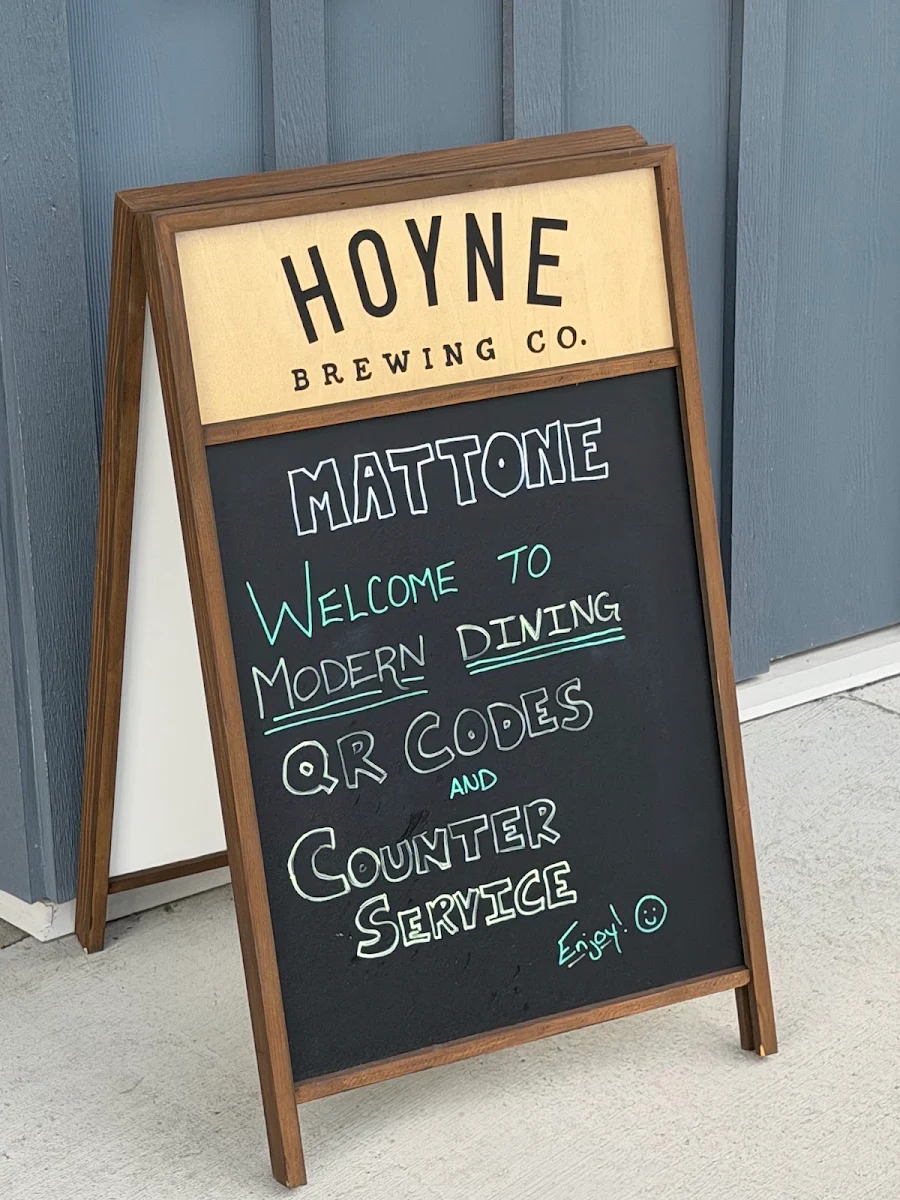 HOYNE
BREWING CO.
MATTONE
WELCOME TO
MODERN DINING
QR CODES
AND
COUNTER
SERVICE
Enjoy! ☺